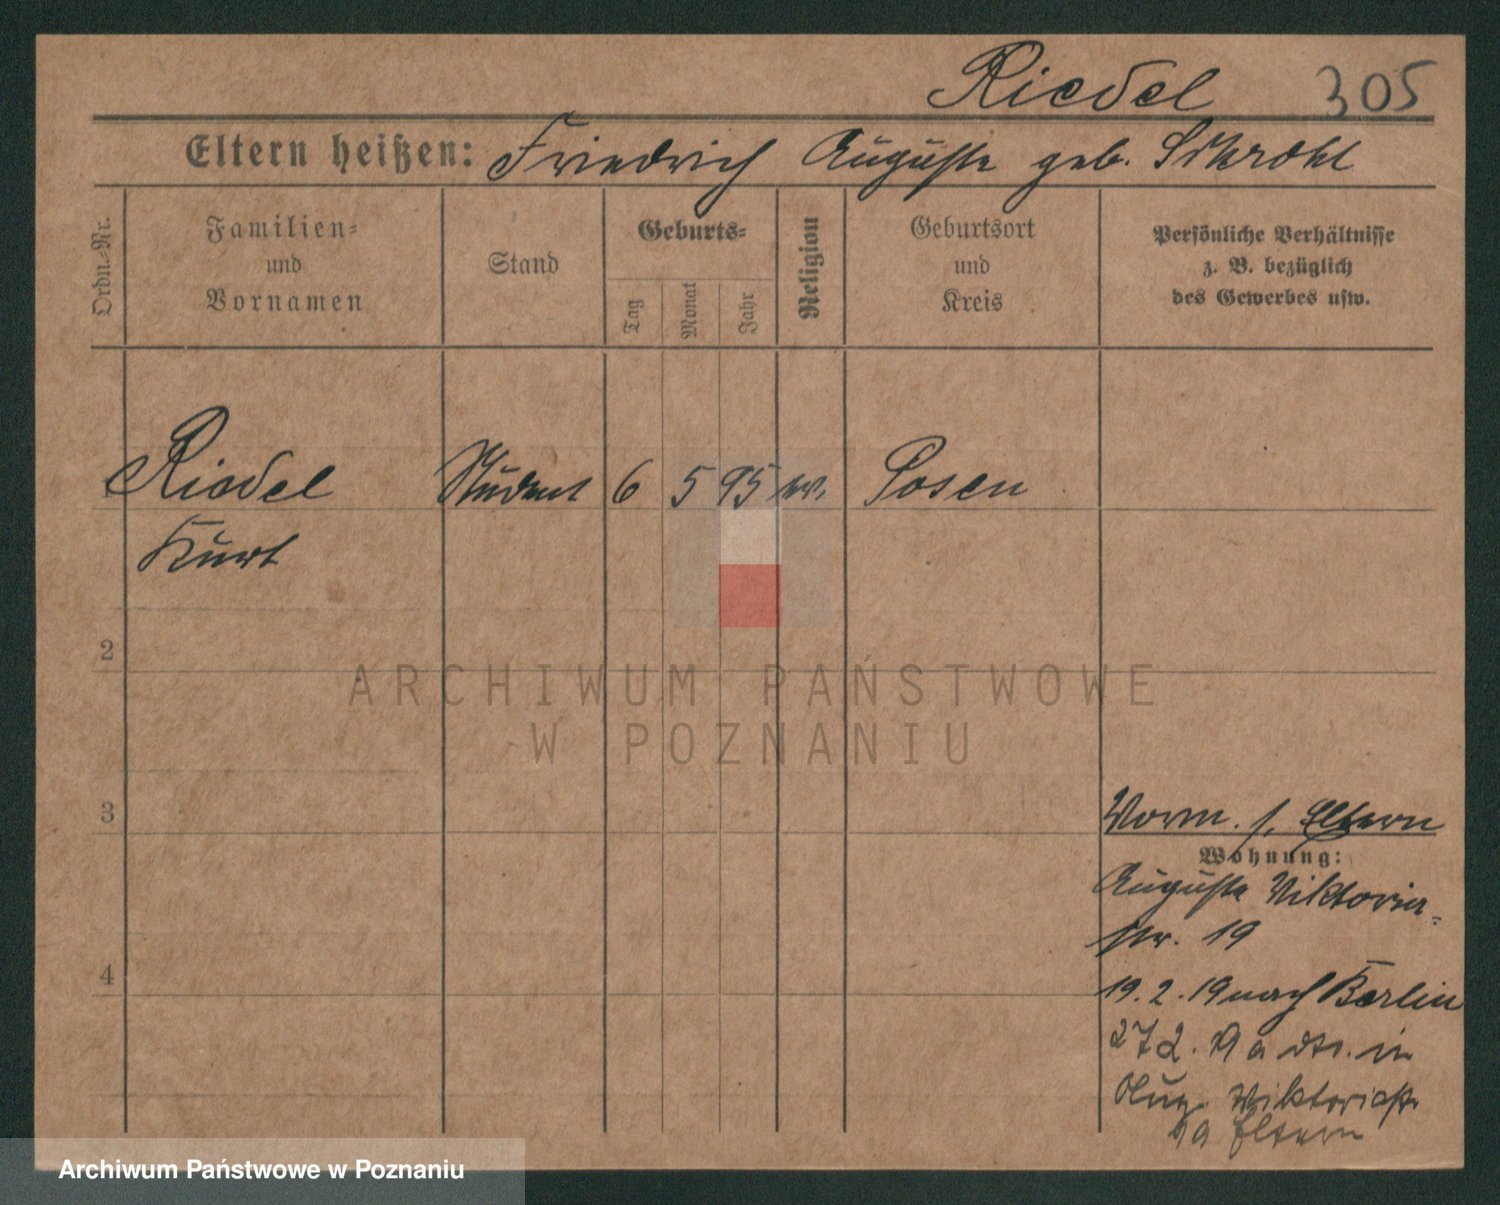 Riedel 305
Eltern heißen: Friedrich Auguste geb.
Ordn.-Nr.
Familien-
und
Vornamen
Stand
Geburts-
Tag
Monat
Jahr
Religion
Geburtsort
und
Kreis
Persönliche Verhältnisse
z. B. bezüglich
des Gewerbes usw.
1 Riedel Student 6 5 95 ev. Posen
Kurt
2
ARCHIWUM PAŃSTWOWE
W POZNANIU
3
Vorm. s. Eltern
Wohnung:
Auguste Viktoria-
str. 19
4
19. 2. 19 nach Berlin
27 2. 19 a in
Aug. Viktoriastr
19 Eltern
Archiwum Państwowe w Poznaniu